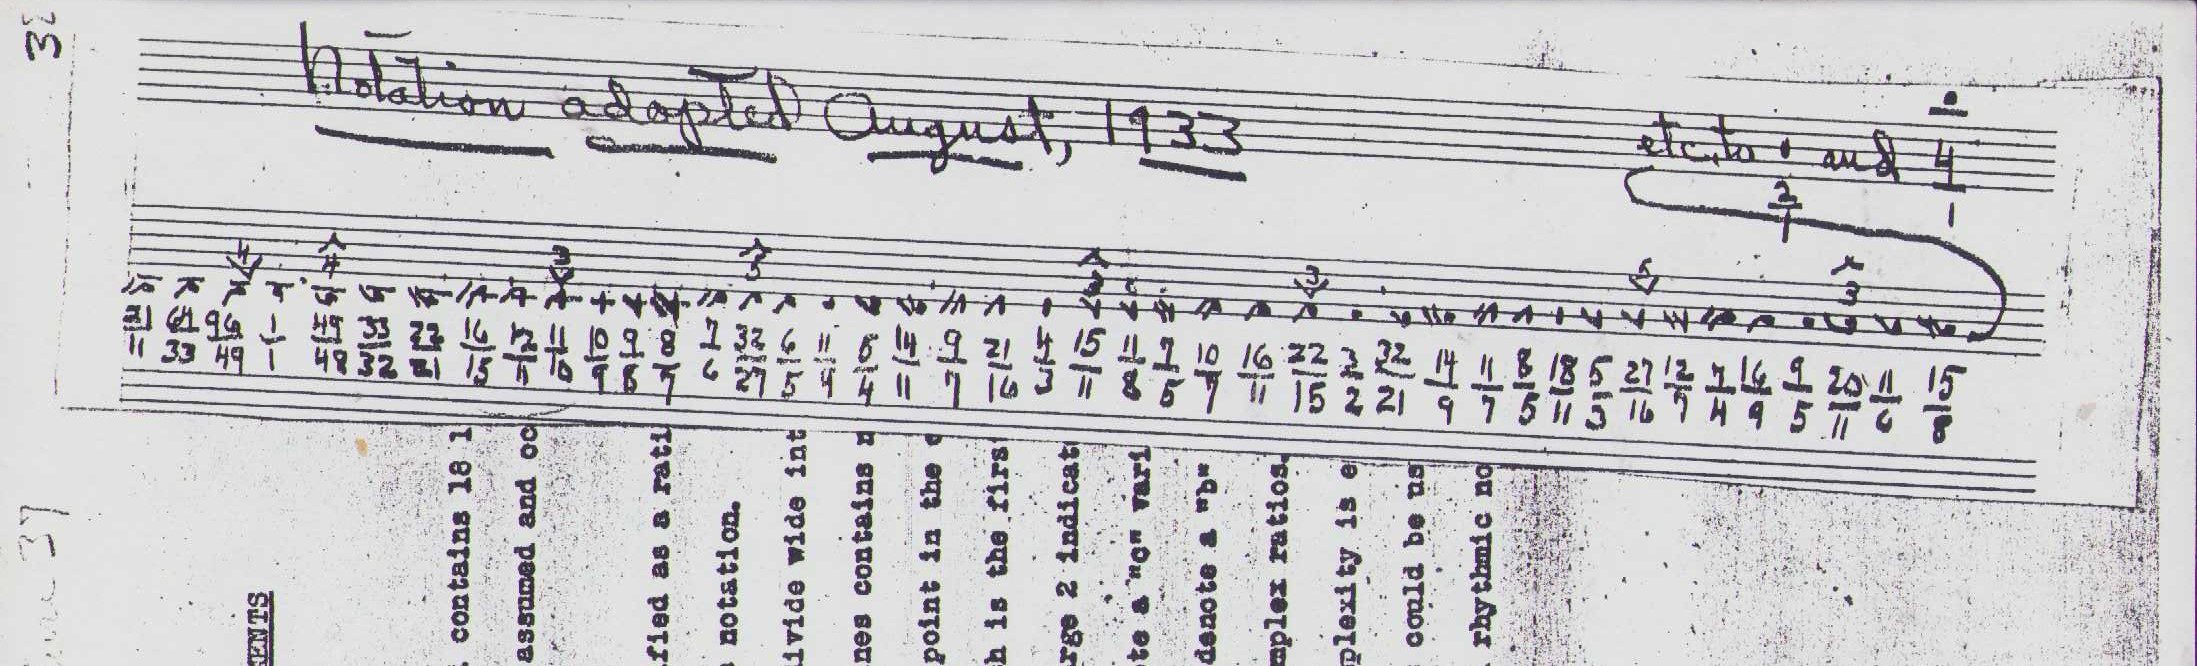 38
Notation adopted August, 1933
etc. to 2/1 and 4/1
4 4 3 3 3 3 5 3
21/11 64/33 96/49 1/1 49/48 33/32 22/21 16/15 12/11 11/10 10/9 9/8 8/7 7/6 32/27 6/5 11/4 5/4 14/11 9/7 21/16 4/3 15/11 11/8 7/5 10/7 16/11 22/15 3/2 32/21 14/9 11/7 8/5 18/11 5/3 27/16 12/7 7/4 16/9 9/5 20/11 11/6 15/8
37
ENTS
contains 18 l
assumed and oc
fied as a rati
notation.
ivide wide int
nes contains n
point in the
h is the firs
rge 2 indicat
te a "c" vari
denote a "b"
mplex ratios.
plexity is e
could be us
rhythmic no